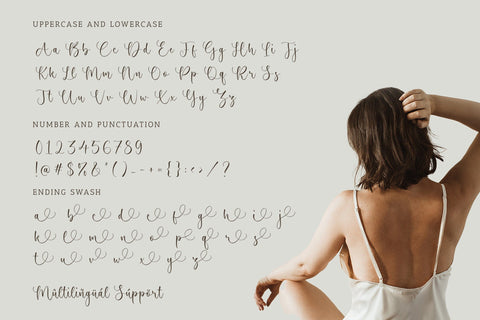 UPPERCASE AND LOWERCASE
Aa Bb Cc Dd Ee Ff Gg Hh Ii Jj
Kk Ll Mm Nn Oo Pp Qq Rr Ss
Tt Uu Vv Ww Xx Yy Zz
NUMBER AND PUNCTUATION
0123456789
!@#$%&*()_-+={}:<>/?
ENDING SWASH
a b c d e f g h i j
k l m n o p q r s
t u v w x y z
Mùltilìñgüál Súppört